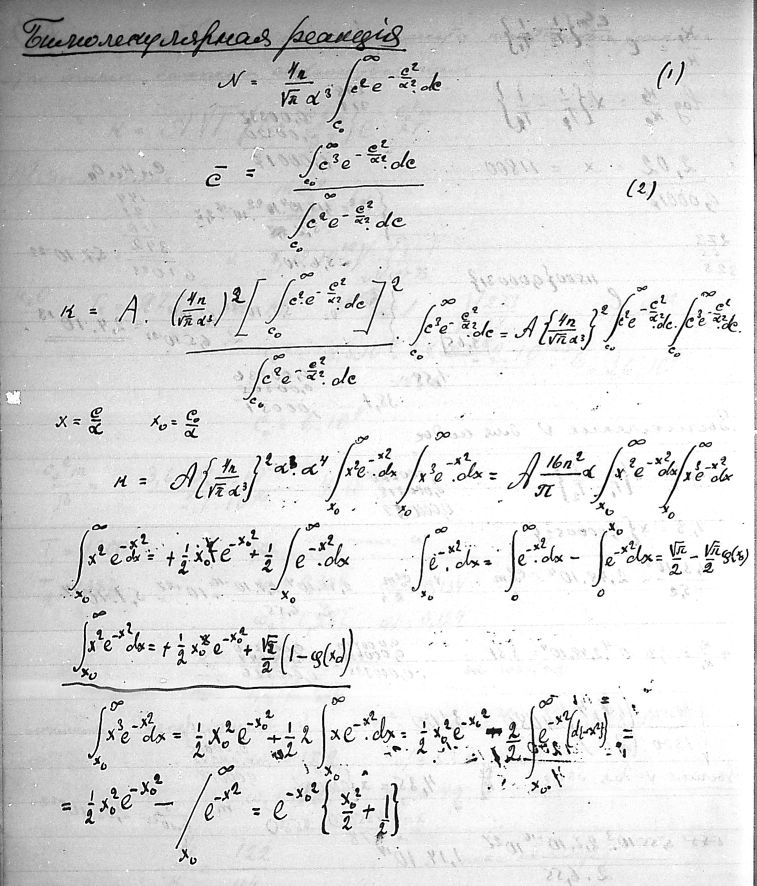 Бимолекулярная реакція
N = \frac{4n}{\sqrt{π} α^3} \int_{c_0}^{∞} c^2 e^{-\frac{c^2}{α^2}}.dc (1)
\bar{c} = \frac{\int_{c_0}^{∞} c^3 e^{-\frac{c^2}{α^2}}.dc}{\int_{c_0}^{∞} c^2 e^{-\frac{c^2}{α^2}}.dc} (2)
к = A. \frac{(\frac{4n}{\sqrt{π} α^3})^2 [\int_{c_0}^{∞} c^2 e^{-\frac{c^2}{α^2}}.dc]^2}{\int_{c_0}^{∞} c^2 e^{-\frac{c^2}{α^2}}.dc} . \int_{c_0}^{∞} c^3 e^{-\frac{c^2}{α^2}}.dc = A \{\frac{4n}{\sqrt{π} α^3}\}^2 \int_{c_0}^{∞} c^2 e^{-\frac{c^2}{α^2}}.dc. \int_{c_0}^{∞} c^3 e^{-\frac{c^2}{α^2}}.dc.
x = \frac{c}{α} x_0 = \frac{c_0}{α}
к = A \{\frac{4n}{\sqrt{π} α^3}\}^2 α^3. α^4 \int_{x_0}^{∞} x^2 e^{-x^2}.dx \int_{x_0}^{∞} x^3 e^{-x^2}.dx = A \frac{16n^2}{π} α \int_{x_0}^{∞} x^2 e^{-x^2} dx \int_{x_0}^{∞} x^3 e^{-x^2} dx
\int_{x_0}^{∞} x^2 e^{-x^2} dx = + \frac{1}{2} x_0 e^{-x_0^2} + \frac{1}{2} \int_{x_0}^{∞} e^{-x^2}.dx \int_{x_0}^{∞} e^{-x^2}.dx = \int_{0}^{∞} e^{-x^2}.dx - \int_{0}^{x_0} e^{-x^2} dx = \frac{\sqrt{π}}{2} - \frac{\sqrt{π}}{2} φ(x_0)
\int_{x_0}^{∞} x^2 e^{-x^2} dx = + \frac{1}{2} x_0 e^{-x_0^2} + \frac{\sqrt{π}}{2} (1 - φ(x_0))
\int_{x_0}^{∞} x^3 e^{-x^2} dx = \frac{1}{2} x_0^2 e^{-x_0^2} + \frac{1}{2} 2 \int_{x_0}^{∞} x e^{-x^2}.dx = \frac{1}{2} x_0^2 e^{-x_0^2} - \frac{2}{2} \int_{x_0}^{∞} e^{-x^2} d(-x^2) =
= \frac{1}{2} x_0^2 e^{-x_0^2} - /_{x_0}^{∞} e^{-x^2} = e^{-x_0^2} \{\frac{x_0^2}{2} + \frac{1}{2}\}